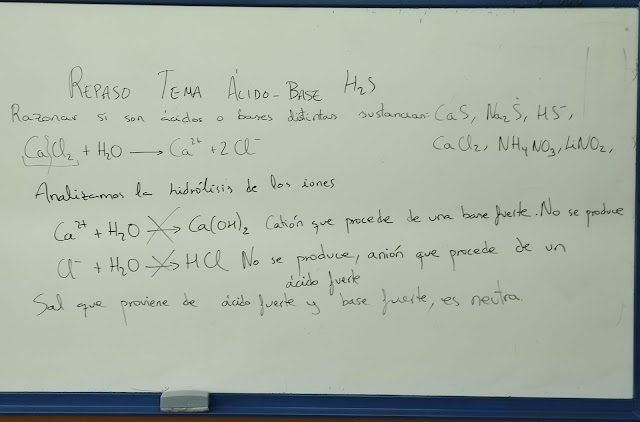 REPASO TEMA ÁCIDO-BASE H₂S
Razonar si son ácidos o bases distintas sustancias: CaS, Na₂S, HS⁻,
CaCl₂ + H₂O → Ca²⁺ + 2Cl⁻ CaCl₂, NH₄NO₃, LiNO₂,
Analizamos la hidrólisis de los iones
Ca²⁺ + H₂O → Ca(OH)₂ Catión que procede de una base fuerte. No se produce
Cl⁻ + H₂O → HCl No se produce, anión que procede de un
ácido fuerte
Sal que proviene de ácido fuerte y base fuerte, es neutra.